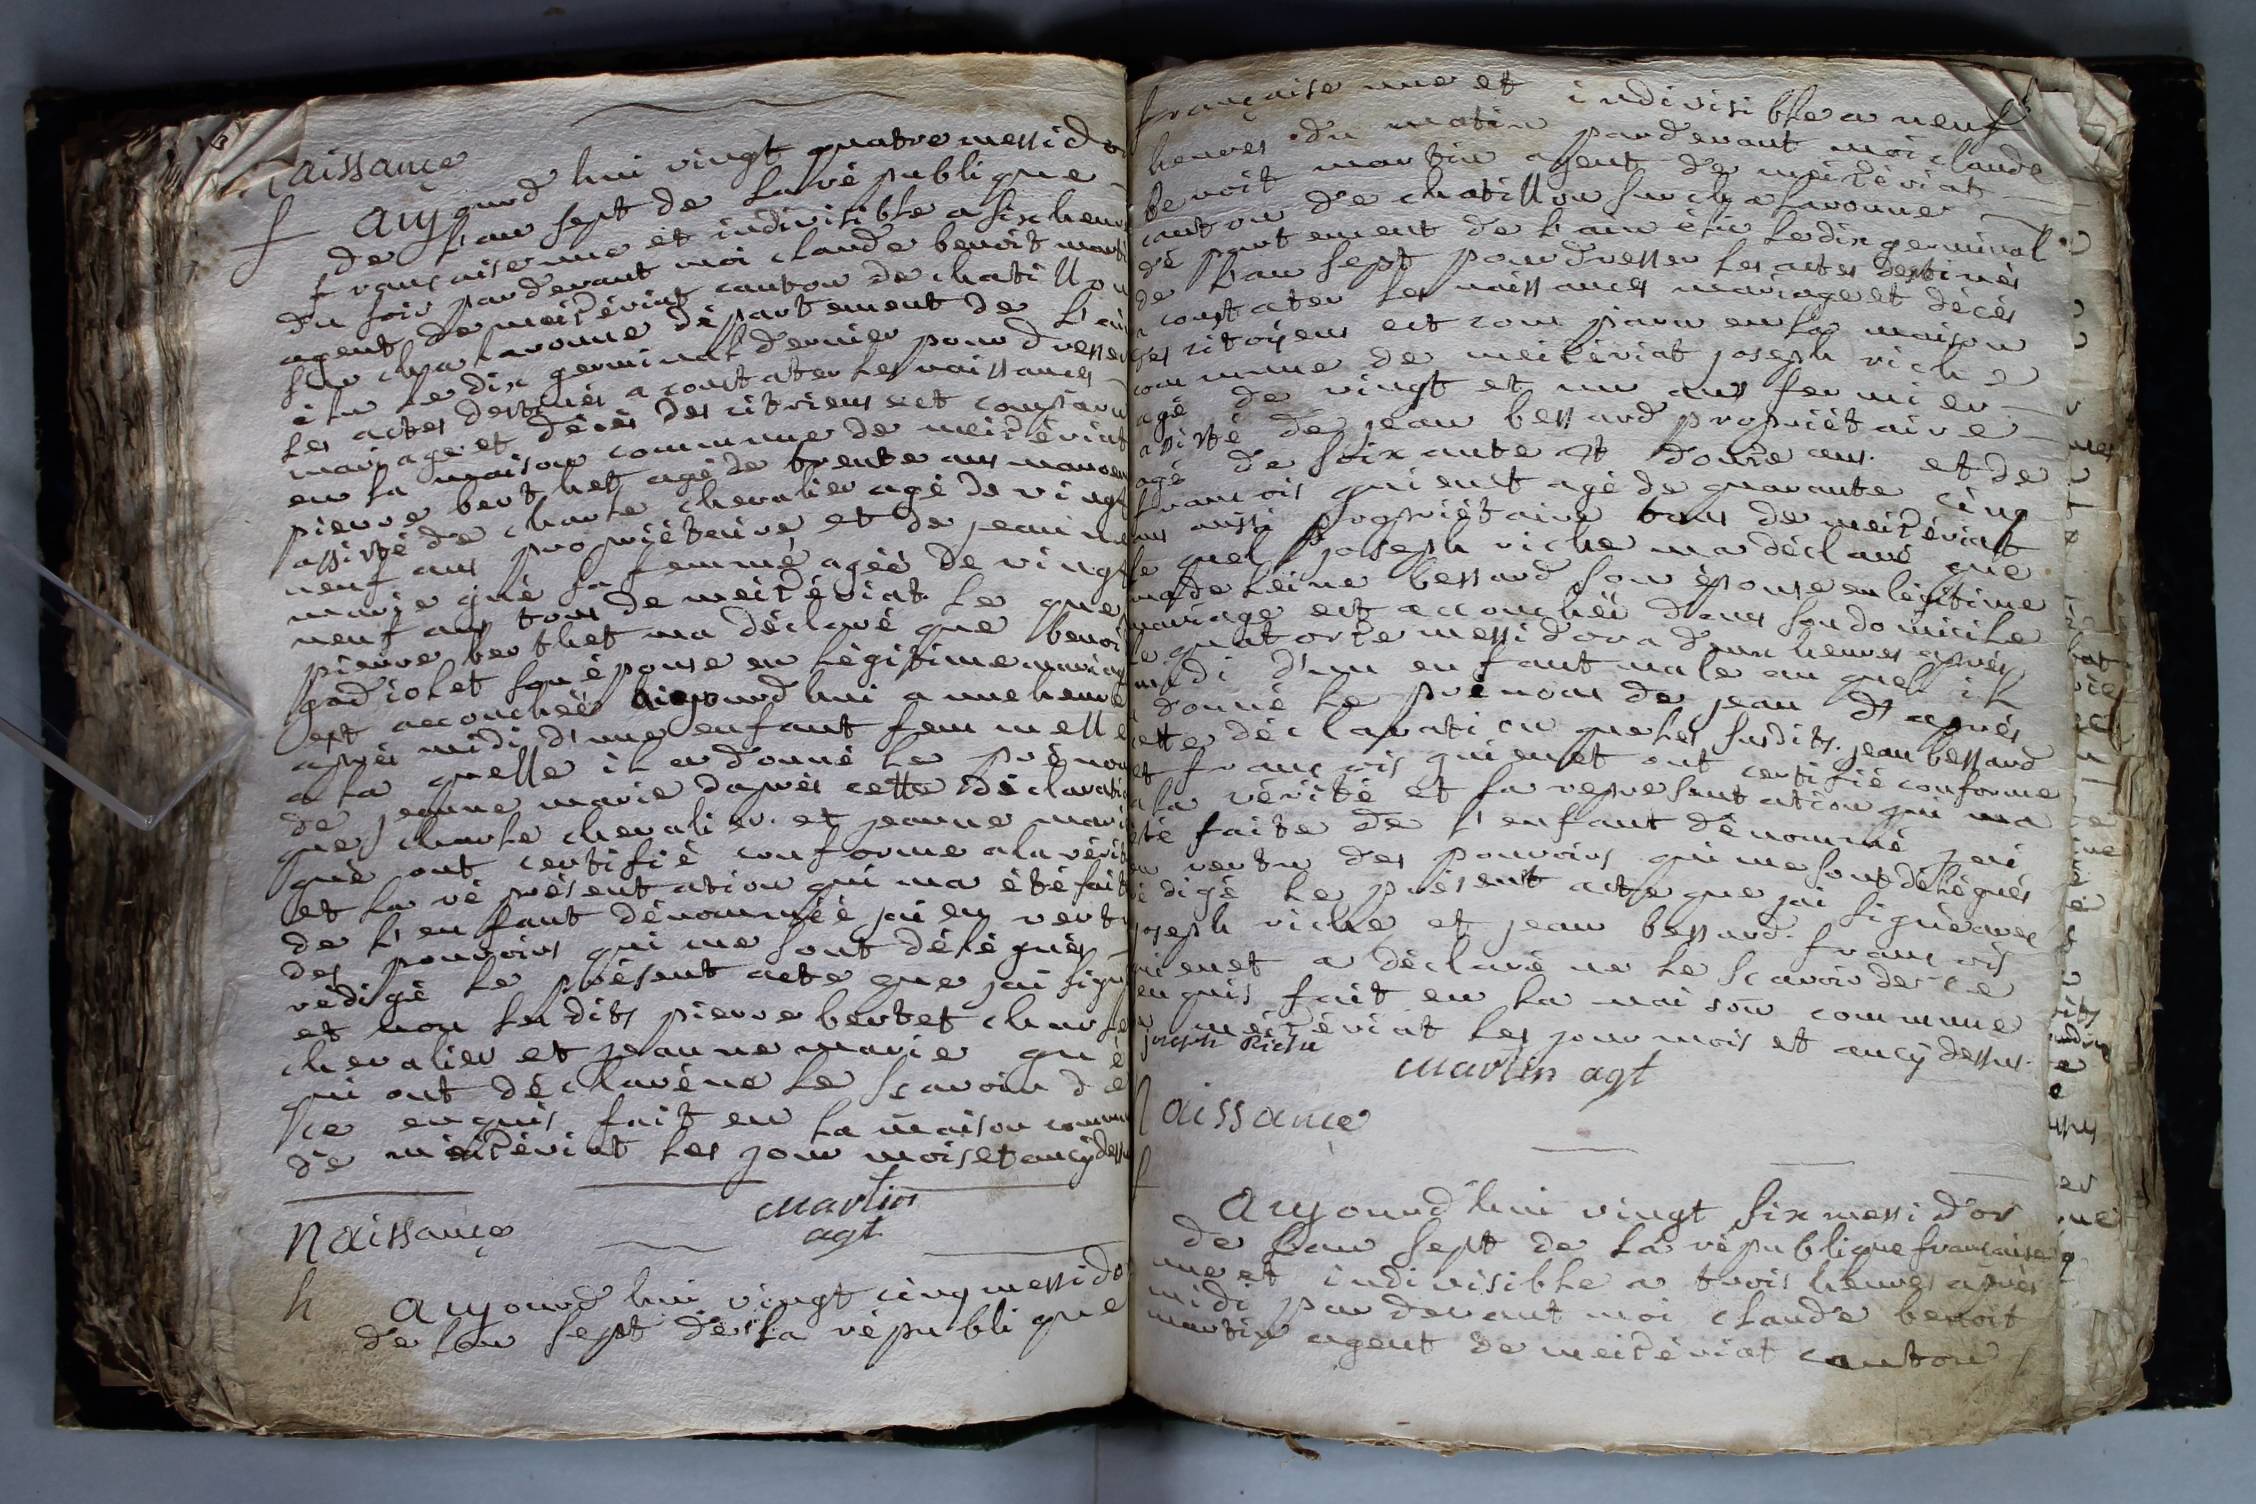 Naissançe
f aujourd hui vingt quatre messidor
de l'an sept de la république
française une et indivisible a six heures
du soir pardevant moi claude benoit marti
agent de meizériat canton de chatillon
sur chalaronne département de l'ain
élu le dix germinal dernier pour dresser
les actes destinés a constater les naissances
mariage et décès des citoiens est comparu
en la maison commune de meizériat
pierre berthet agé de trente ans manoeu
assisté de charle chevalier agé de vingt
neuf ans propriétaire, et de jeanne
marie gué sa femme agéé de vingt
neuf ans tous de meizériat. le quel
pierre berthet ma déclaré que benoi
gadiolet son épouse en légitime mariag
est accouchéé aujourd hui a une heure
après midi d'une enfant femmelle
a la quelle il a donné le prénom
de jeanne marie daprès cette déclarati
que charle chevalier et jeanne marie
gué ont certifié conforme a la vérité
et la représentation qui ma été faite
de l'enfant dénomméé jai en vertu
des pouvoirs qui me sont délégués
rédigé le présent acte que jai signé
et non lesdits pierre bertet charle
chevalier et jeanne marie gué
qui ont déclaré ne le scavoir de
ce enquis fait en la maison commun
de meizériat les jour mois et an cy dessu
Martin
agt
Naissançe
h aujourd hui vingt cinq messido
de l'an sept de la république
française une et indivisible a neuf
heures du matin pardevant moi claude
benoit martin agent de meizériat
canton de chatillon sur chalaronne
département de l'ain élu le dix germinal
de l'an sept pour dresser les actes destinés
a constater les naissances mariage et décès
des citoyens est comparu en la maison
commune de meizériat joseph riche
agé de vingt et un ans fermier
assisté de jean bessard propriétaire
agé de soixante et douze ans. et de
francois guienet agé de quarante cinq
ans aussi propriétaire tous de meizériat
le quel joseph riche ma déclaré que
madeleine bessard son épouse en légitime
mariage est accouchéé dans son domicile
le quatorze messidor a deux heures après
midi d'un enfant male au quel il
a donné le prénom de jean d'après
cette déclaration que les susdits jean bessard
et françois guienet ont certifié conforme
a la vérité et la representation qui ma
été faite de l'enfant dénommé jai
en vertu des pouvoirs qui me sont délégués
rédigé le présent acte que jai signé avec
joseph riche et jean bessard. francois
guienet a déclaré ne le scavoir de ce
enquis fait en la maison commune
de meizériat les jour mois et an cy dessus.
joseph Riche
Martin agt
Naissançe
f
aujourd'hui vingt six messidor
de l'an sept de la république française
une et indivisible a trois heures après
midi par devant moi claude benoit
martin agent de meizériat canton